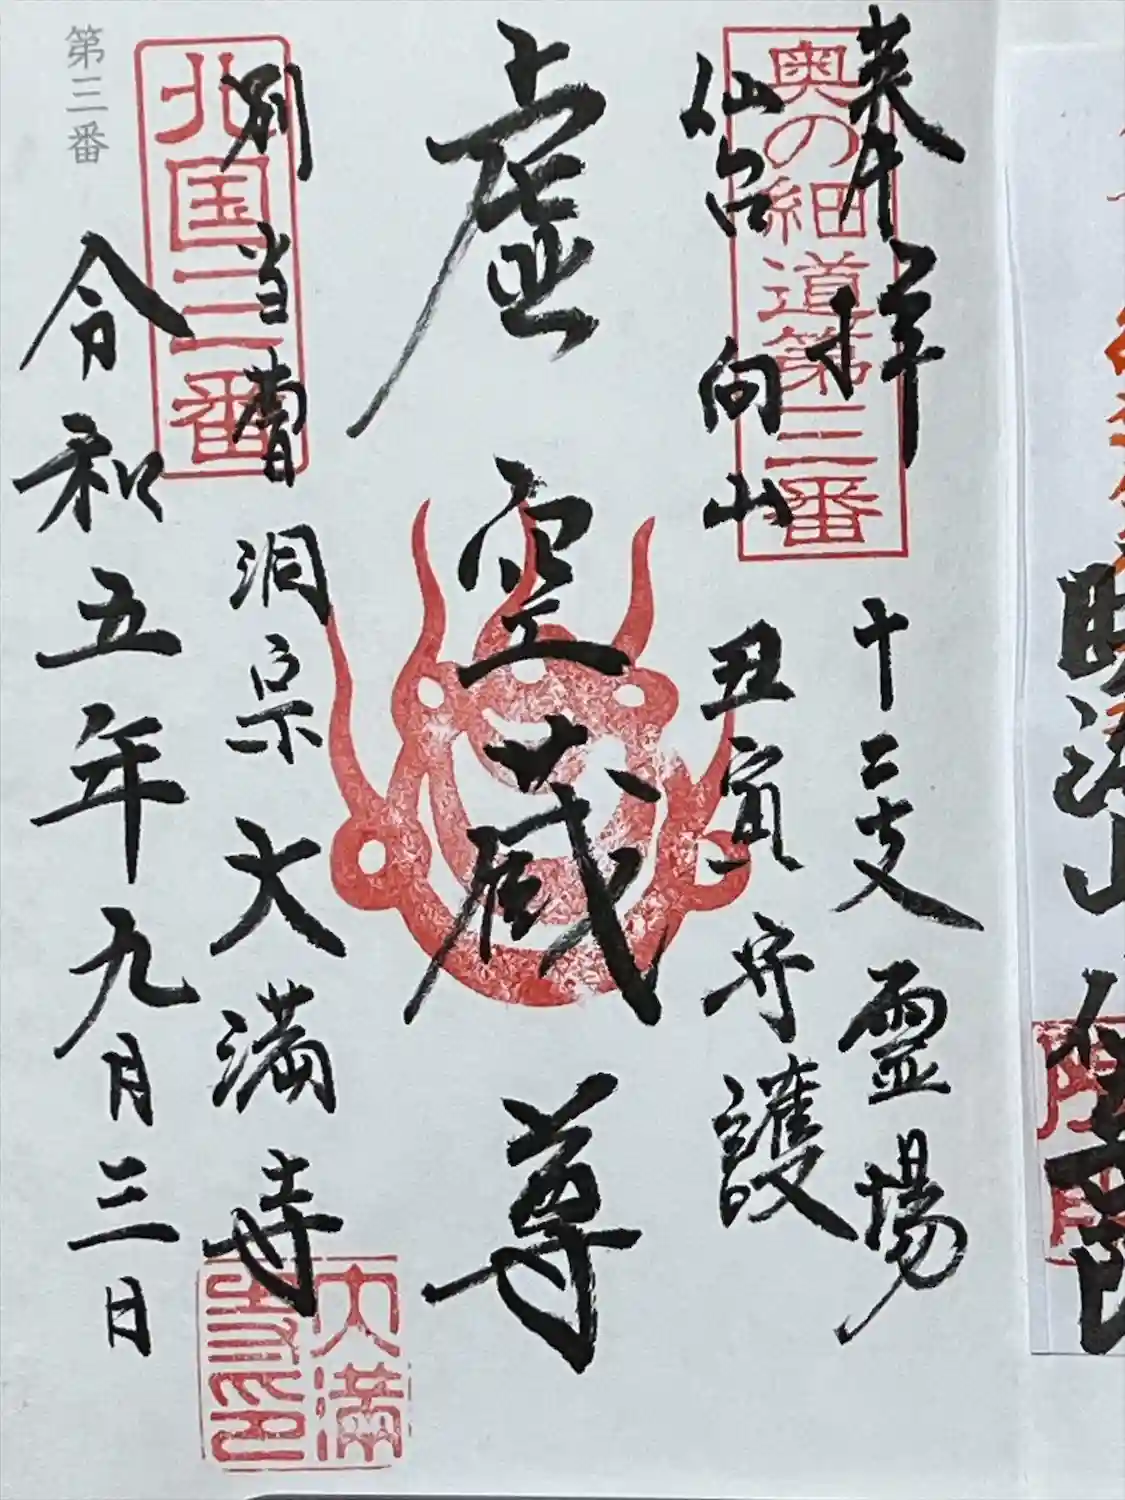 奉拝
十二支霊場
奥の細道第三番
仙台向山
丑寅守護
虚空蔵尊
別当曹洞宗大満寺
北国三番
大満寺印
令和五年九月三日
第三番